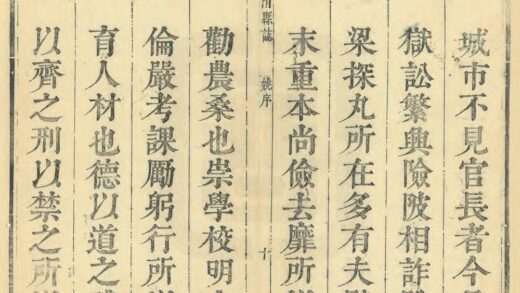 城市不見官長者今
獄訟繁興險陂相詐
梁探丸所在多有夫
末重本尚儉去靡所
縣誌 姚序 十
勸農桑也崇學校明
倫嚴考課勵躬行所
育人材也德以道之
以齊之刑以禁之所